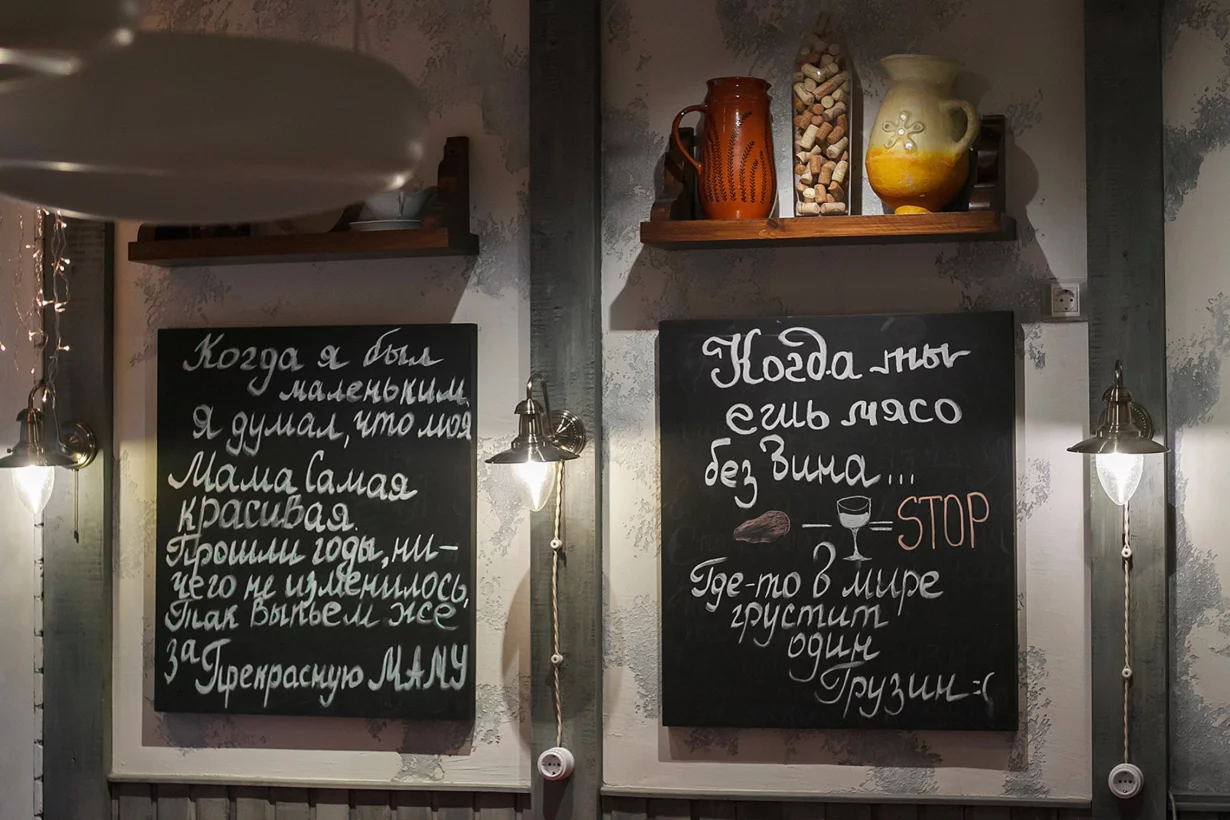 Когда я был
маленьким,
я думал, что моя
Мама Самая
красивая.
Прошли годы, ни-
чего не изменилось,
Так выпьем же
за Прекрасную МАМУ
Когда ты
ешь мясо
без Вина...
— = STOP
Где-то в мире
грустит
один
Грузин =(